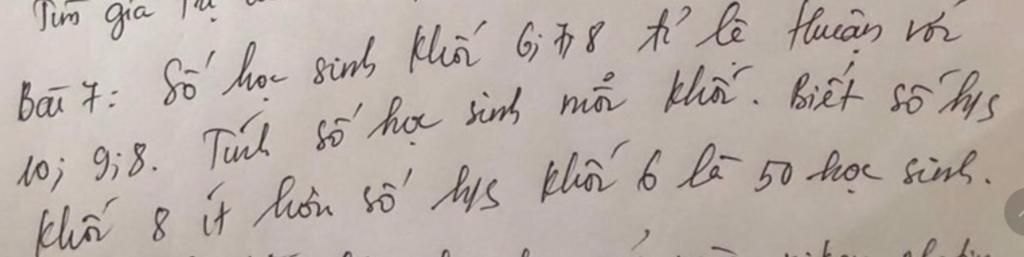 Tìm giá trị
Bài 7: Số học sinh khối 6; 7; 8 tỉ lệ thuận với
10; 9; 8. Tính số học sinh mỗi khối. Biết số h/s
khối 8 ít hơn số h/s khối 6 là 50 học sinh.